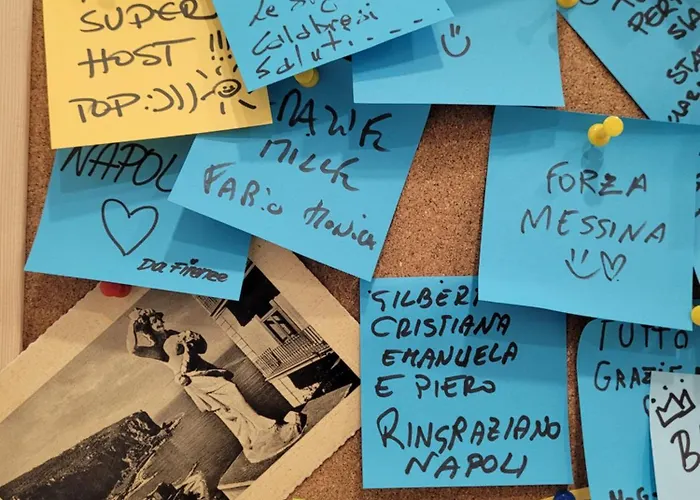 SUPER
HOST !!!
TOP:)))
Calabresi
NAPOL
Da Firenze
MILLE
FABIO MONICA
FORZA
MESSINA
GILBER
CRISTIANA
EMANUELA
E PIERO
RINGRAZIANO
NAPOLI
TUTTO
GRAZIE
B